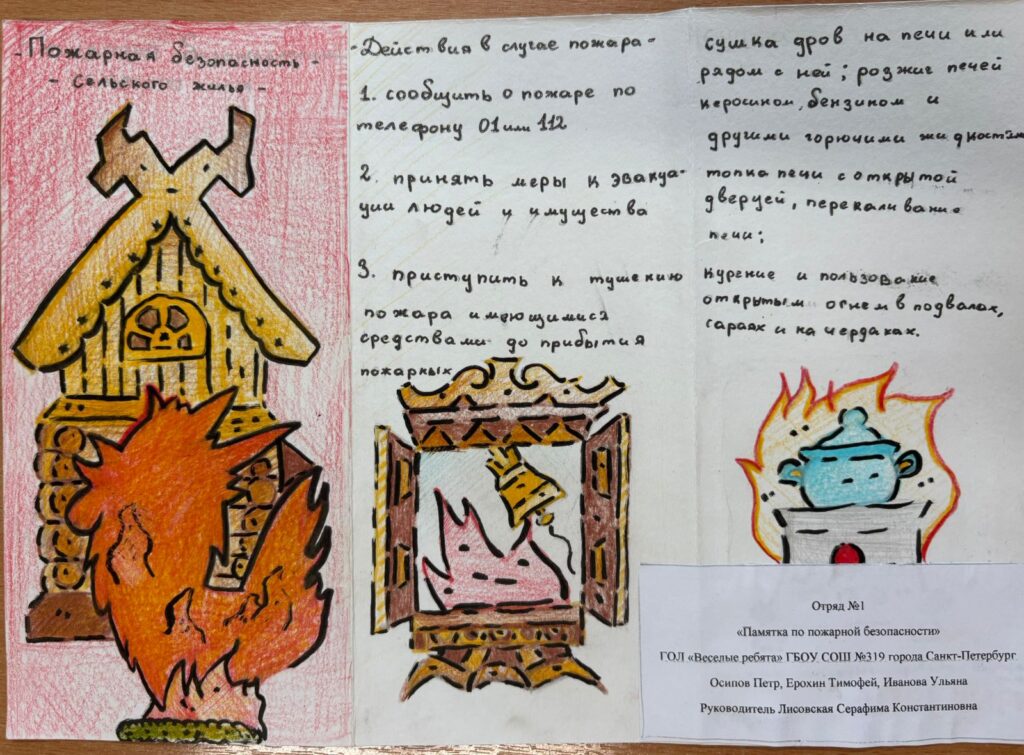 - Пожарная безопасность -
- сельского жилья -
- Действия в случае пожара -
1. сообщить о пожаре по
телефону 01 или 112
2. принять меры к эвакуа-
ции людей и имущества
3. приступить к тушению
пожара имеющимися
средствами до прибытия
пожарных
сушка дров на печи или
рядом с ней; розжиг печей
керосином, бензином и
другими горючими жидкостями
топка печи с открытой
дверцей, перекаливание
печи;
курение и пользование
открытым огнем в подвалах,
сараях и на чердаках.
Отряд №1
«Памятка по пожарной безопасности»
ГОЛ «Веселые ребята» ГБОУ СОШ №319 города Санкт-Петербург
Осипов Петр, Ерохин Тимофей, Иванова Ульяна
Руководитель Лисовская Серафима Константиновна